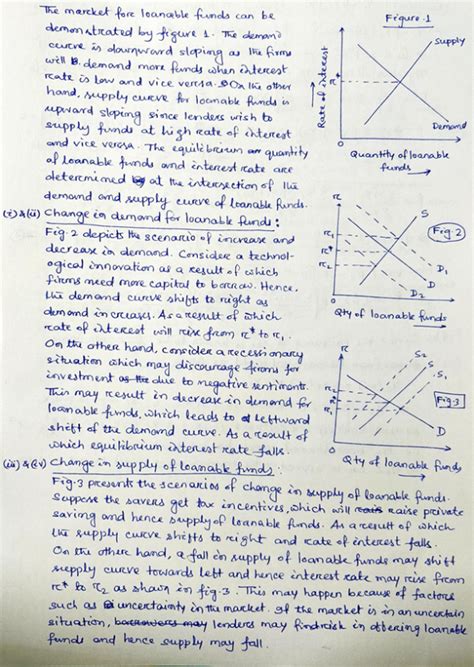 The market for loanable funds can be
demonstrated by figure 1. The demand
curve is downward sloping as the firms
will demand more funds when interest
rate is low and vice versa. On the other
hand, supply curve for loanable funds is
upward sloping since lenders wish to
supply funds at high rate of interest
and vice versa. The equilibrium quantity
of loanable funds and interest rate are
determined at the intersection of the
demand and supply curve of loanable funds.
Figure 1
Rate of interest
r*
Supply
Demand
Quantity of loanable
funds
(i) & (ii) Change in demand for loanable funds:
Fig. 2 depicts the scenario of increase and
decrease in demand. Consider a technol-
ogical innovation as a result of which
firms need more capital to borrow. Hence,
the demand curve shifts to right as
demand increases. As a result of which
rate of interest will rise from r* to r1.
On the other hand, consider a recessionary
situation which may discourage firms for
investment due to negative sentiments.
This may result in decrease in demand for
loanable funds, which leads to leftward
shift of the demand curve. As a result of
which equilibrium interest rate falls.
Fig. 2
r
r1
r*
r2
S
D1
D
D2
Qty of loanable funds
Fig. 3
r
r2
r*
r1
S2
S
S1
D
Qty of loanable funds
(iii) & (iv) Change in supply of loanable funds:
Fig. 3 presents the scenarios of change in supply of loanable funds.
Suppose the savers get tax incentives, which will raise private
saving and hence supply of loanable funds. As a result of which
the supply curve shifts to right and rate of interest falls.
On the other hand, a fall in supply of loanable funds may shift
supply curve towards left and hence interest rate may rise from
r* to r2 as shown in fig. 3. This may happen because of factors
such as uncertainty in the market. If the market is in an uncertain
situation, lenders may find risk in offering loanable
funds and hence supply may fall.